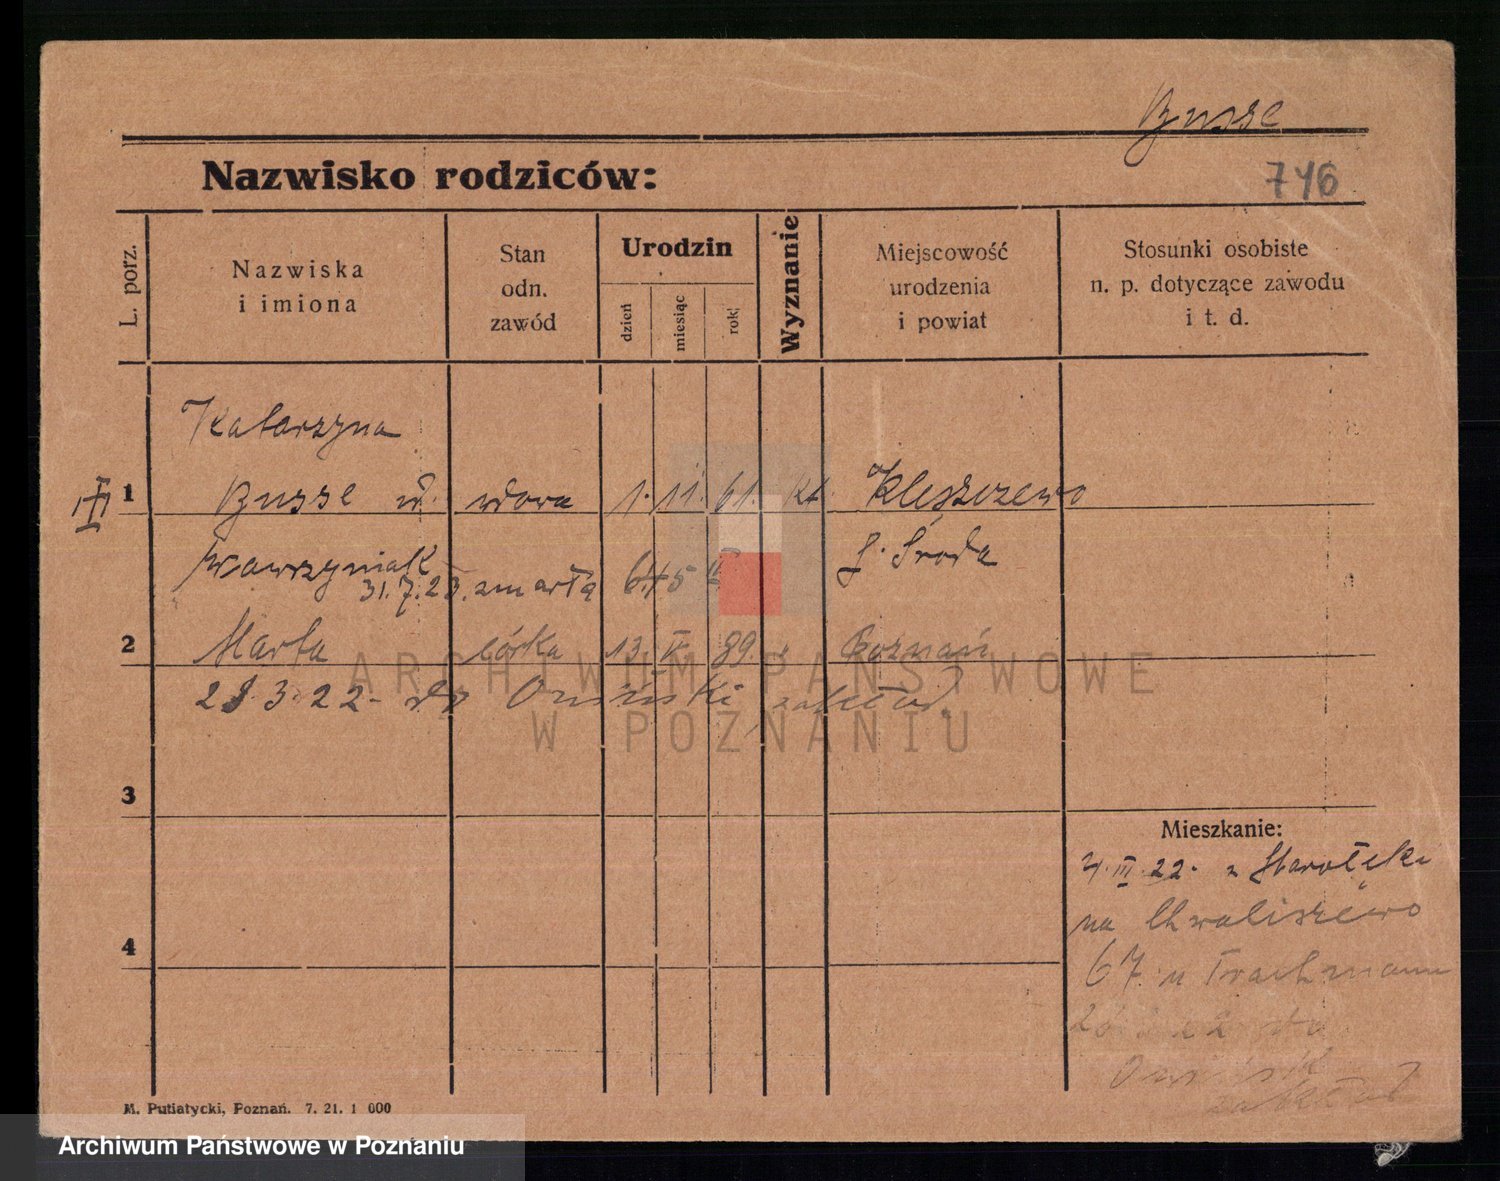 Busse
Nazwisko rodziców:
746
L. porz.
Nazwiska
i imiona
Stan
odn.
zawód
Urodzin
dzień
miesiąc
rok
Wyznanie
Miejscowość
urodzenia
i powiat
Stosunki osobiste
n. p. dotyczące zawodu
i t. d.
Katarzyna
1 Busse w. wdowa 1. 11. 61. kt. Kleszczewo
Wawrzyniak
Środa
31.7.23. zmarła 645
2 Marta córka 13. V. 89. " Poznań
3.22 - do
3
Mieszkanie:
4. III 22. z Starołęki
na Chwaliszewo
4
67. u Trachmann
do
M. Putiatycki, Poznań. 7. 21. 1 000
ARCHIWUM PAŃSTWOWE
W POZNANIU
Archiwum Państwowe w Poznaniu